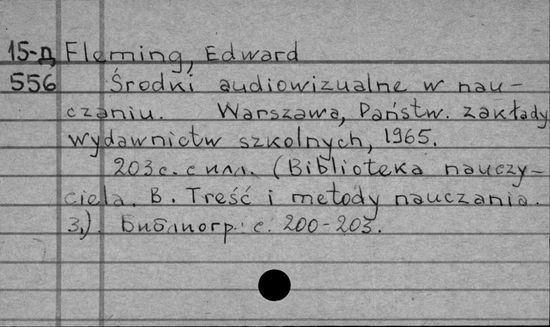 15-д Fleming, Edward
556 Środki audiowizualne w nau-
czaniu. Warszawa, Państw. zakłady
wydawnictw szkolnych, 1965.
203 с. с илл. (Biblioteka nauczy-
ciela. B. Treść i metody nauczania.
3.). Библиогр: с. 200-203.